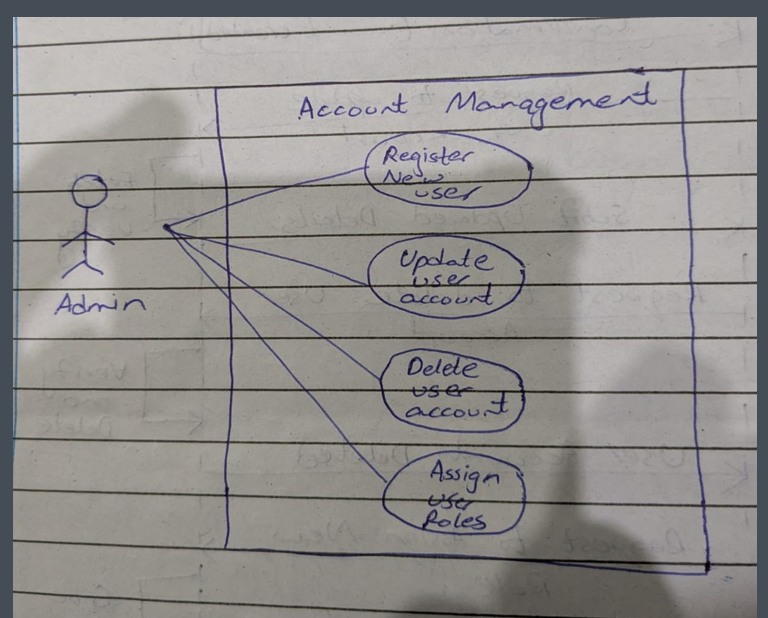 Account Management
Register
New
user
Admin
Update
user
account
Delete
user
account
Assign
user
Roles